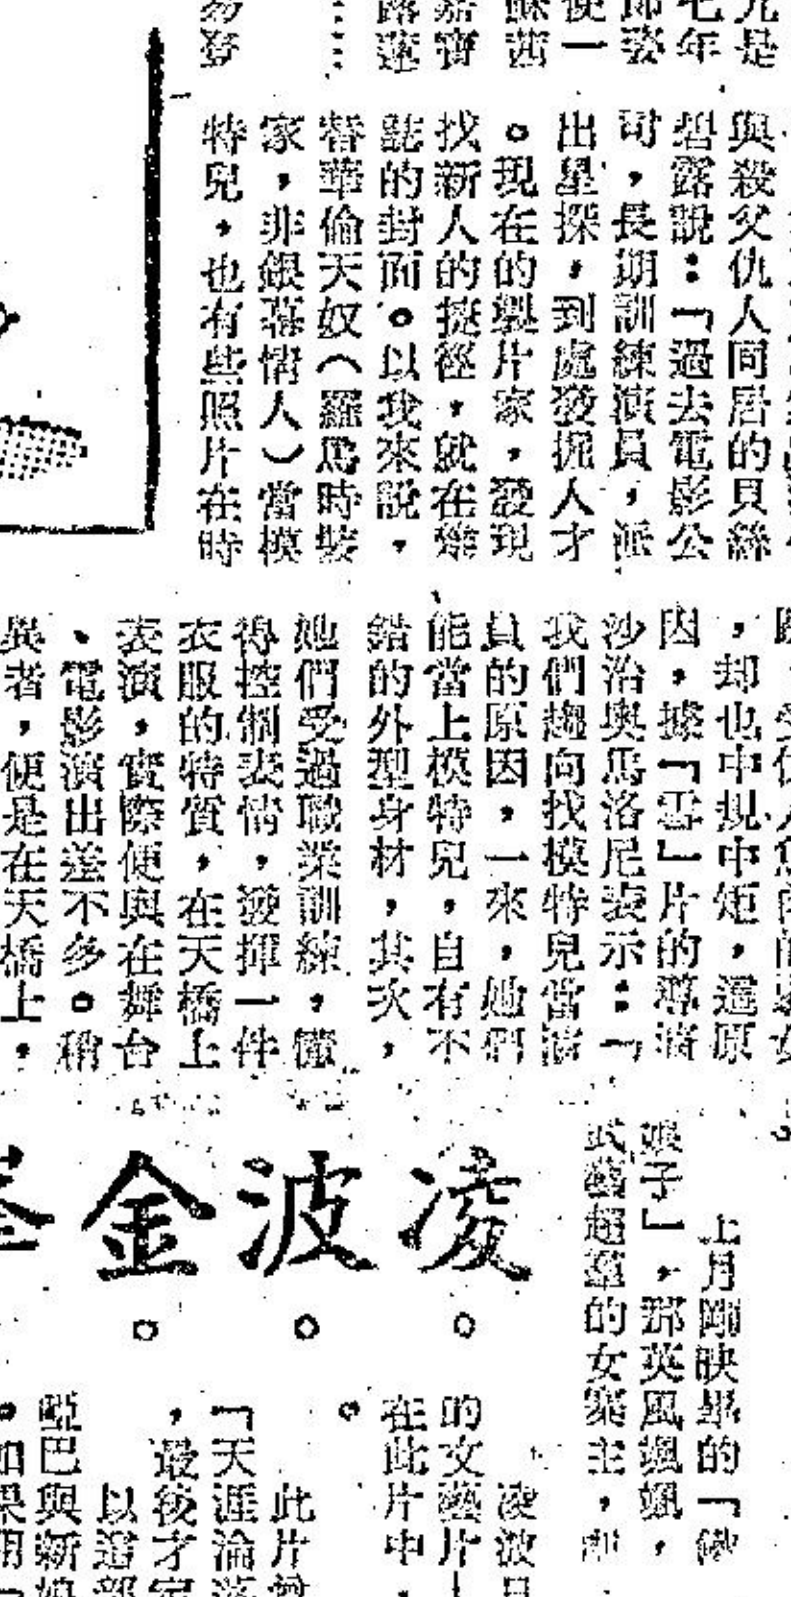 與殺父仇人同居的貝絲
碧露說：「過去電影公
司，長期訓練演員，派
出星探，到處發掘人才
。現在的製片家，發現
找新人的捷徑，就在雜
誌的封面。以我來說，
替華倫天奴（羅馬時裝
家，非銀幕情人）當模
特兒，也有些照片在時
，却也中規中矩，還原
因，據「雲」片的導演
沙治奧馬洛尼表示：「
我們趨向找模特兒當演
員的原因，一來，她們
能當上模特兒，自有不
錯的外型身材，其次，
她們受過職業訓練，懂
得控制表情，發揮一件
衣服的特質，在天橋上
表演，實際便與在舞台
、電影演出差不多。稍
異者，便是在天橋上，
上月剛映畢的「
娘子」，那英風颯颯，
武藝超羣的女寨主，
凌波金
凌波
的文藝片
在此片中，
。
此片
「天涯淪落
，最後才
以這部
啞巴與新娘
。如果